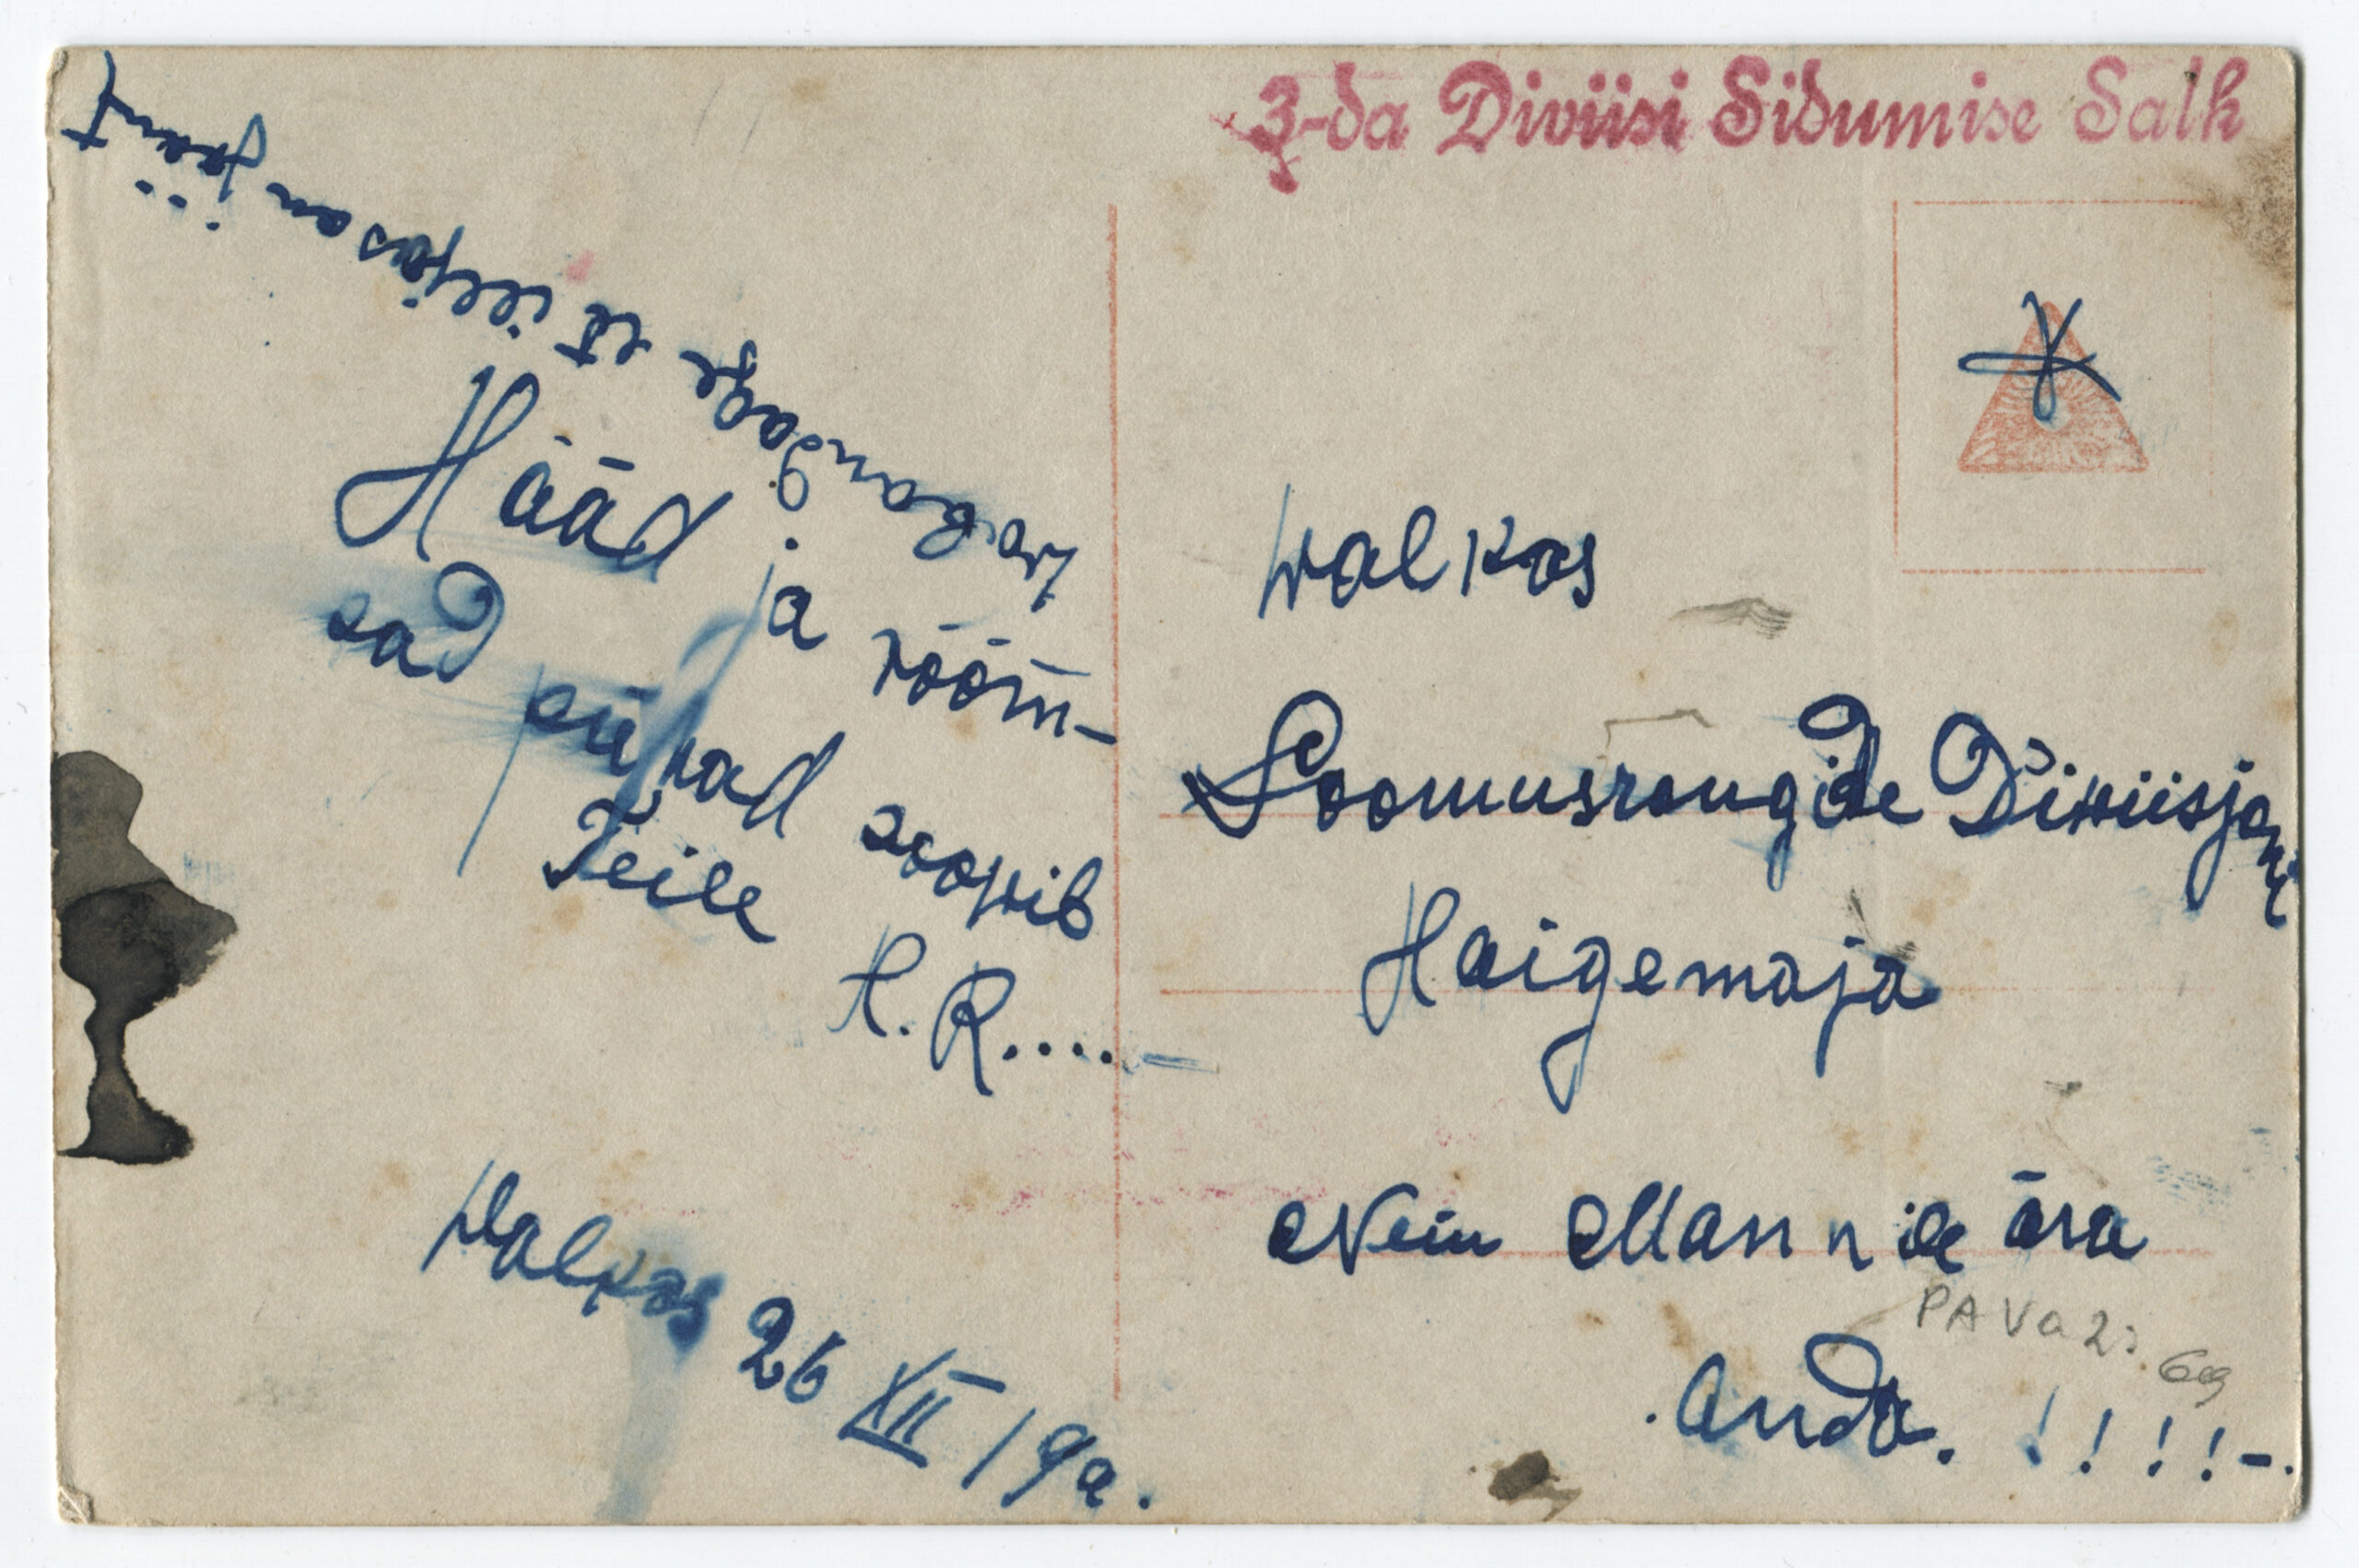 3-da Diviisi Sidumise Salk
Wabandage et iljas on jäänt
Hääd ja rõõm-
sad pühad soowib
Teile
A.R.....
Walkas 26 XII 19a.
Walkas
Soomusrongide Diwiisjoni
Haigemaja
Nein Mannile ära
anda. !!!!-.
PAVa 2: 69